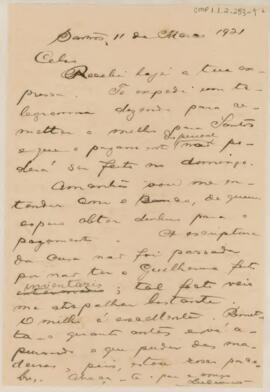 CMP 1.1.2.283-
Santos, 11 de Março 1921
Celso
Recebi hoje a tua ex-
pressa. Te expedi um te-
legramma dizendo para re-
metter o milho para Santos
especial
e que o pagamento não po-
derá ser feito no domingo.
Amanhã vou me en-
tender com o Banco, de quem
espero obter dinheiro para o
pagamento. A escriptura
da Casa não foi passada
por não ter o Guilherme feito
inventario; tal facto veio
me atrapalhar bastante.
O milho é excellente.
ta-o quanto antes e vá a-
purando o que puder das ma-
deiras, pois, estou
Abraça-te, pae e amigo